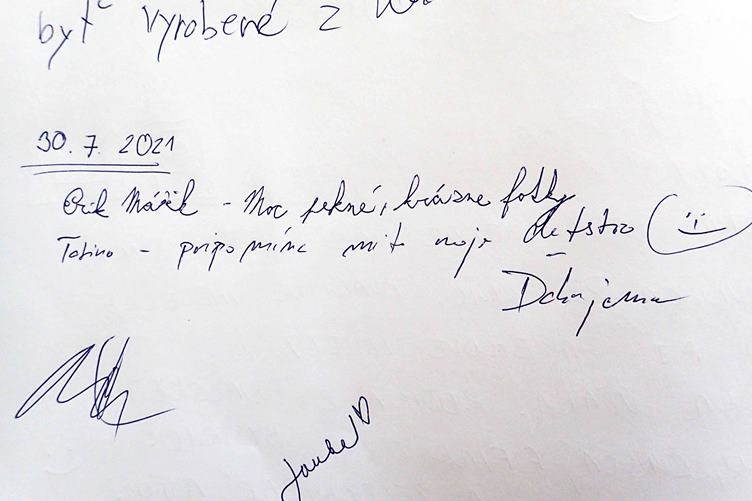 byť vyrobené z
30. 7. 2021
Erik Mářik - Moc pekné, krázne fotky
Totino - pripomína mit moje detstvo
Ďakujeme